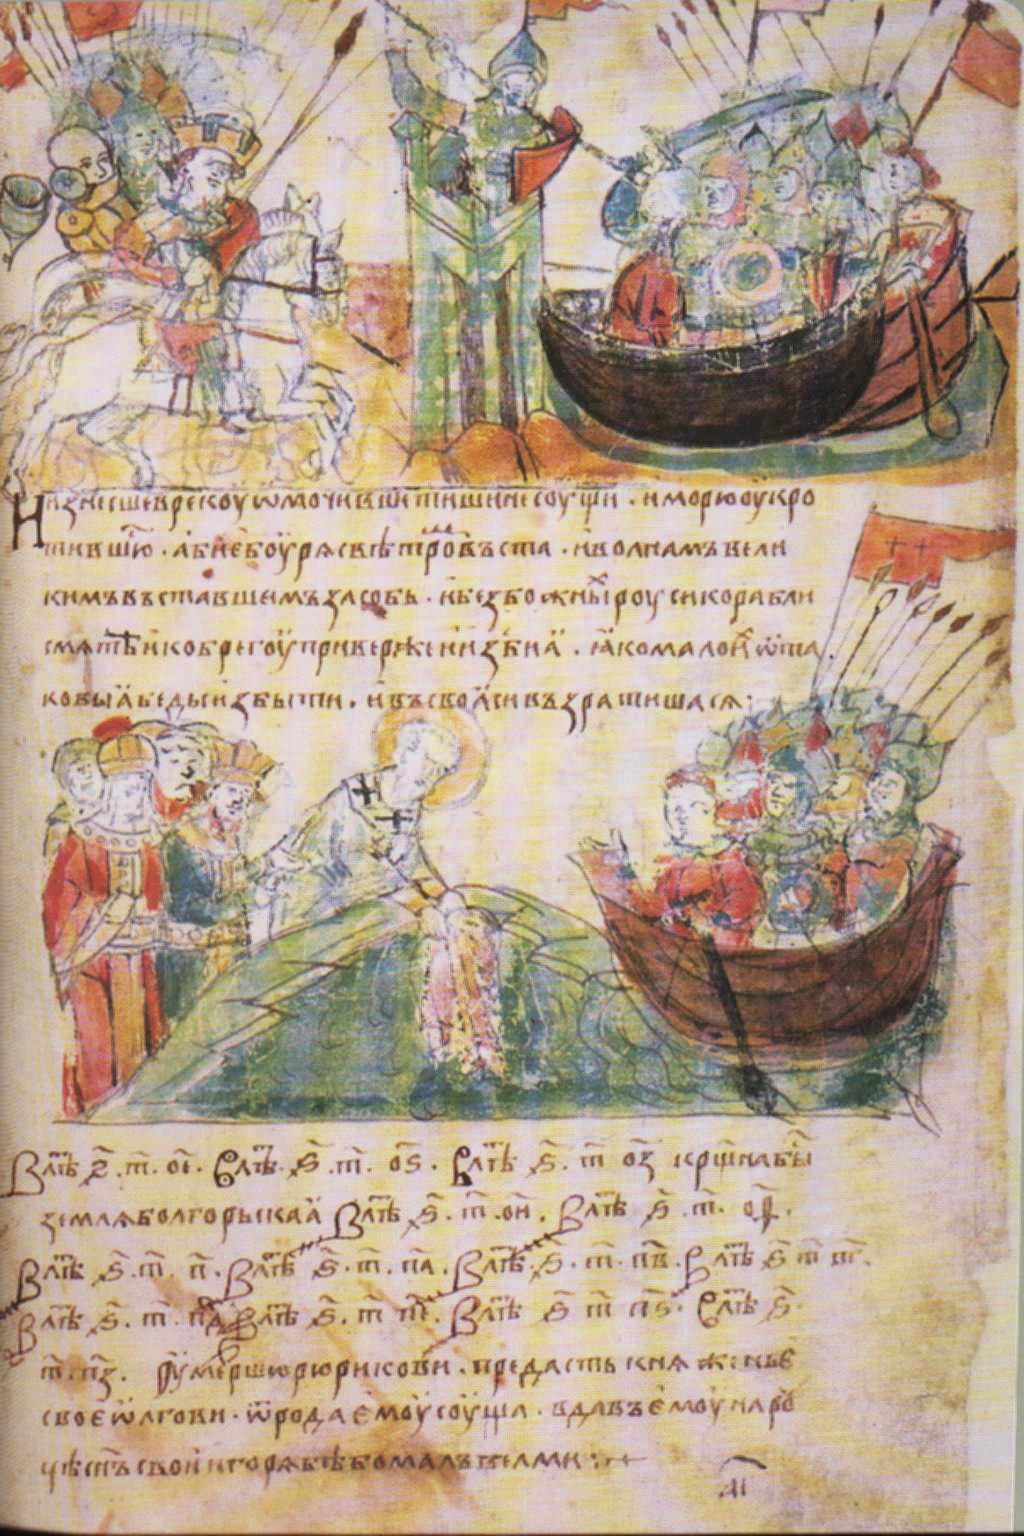 Изнесше в рекоу ѡмочивши тишине соущи . и морю оукро
тившюⷭ . абие боурѧ с вѣтроⷨ въста . и волнамъ вели
кимъ въставшемъ засобь . и безбожныⷯ роуси корабли
смѧте и к брегоу привержени изби ꙗ . ꙗко мало иⷯ ѿ та
ковыꙗ беды избыти . и въ своꙗси възратишасѧ :
В лⷮѣ ҂ѕ҃ . т҃ . ое҃ . В лⷮѣ ҂ѕ҃ . т҃ . оѕ҃ . В лⷮѣ ҂ѕ҃ . т҃ оз҃ крщ҃на бы̑
землѧ болгорьскаꙗ В лⷮѣ ҂ѕ҃ . т҃ . ои҃ . В лⷮѣ ҂ѕ҃ . т҃ . оѳ҃ .
В лⷮѣ ҂ѕ҃ . т҃ . п҃ . В лⷮѣ ҂ѕ҃ . т҃ . па҃ . В лⷮѣ ҂ѕ҃ . т҃ . пв҃ . В лⷮѣ ҂ѕ҃ т҃ пг҃ .
В лⷮѣ ҂ѕ҃ . т҃ . пд҃ В лⷮѣ ҂ѕ҃ . т҃ пе҃ В лⷮѣ ҂ѕ҃ т҃ пѕ҃ . В лⷮѣ ҂ѕ҃ .
т҃ . пз҃ . оумершю рюрикови . предасть кнѧженье
свое ѡлгови . ѿ рода емоу соуща . вдавъ емоу на роу
цѣ сн҃ъ свои игорѧ бѣ бо малъ велми :